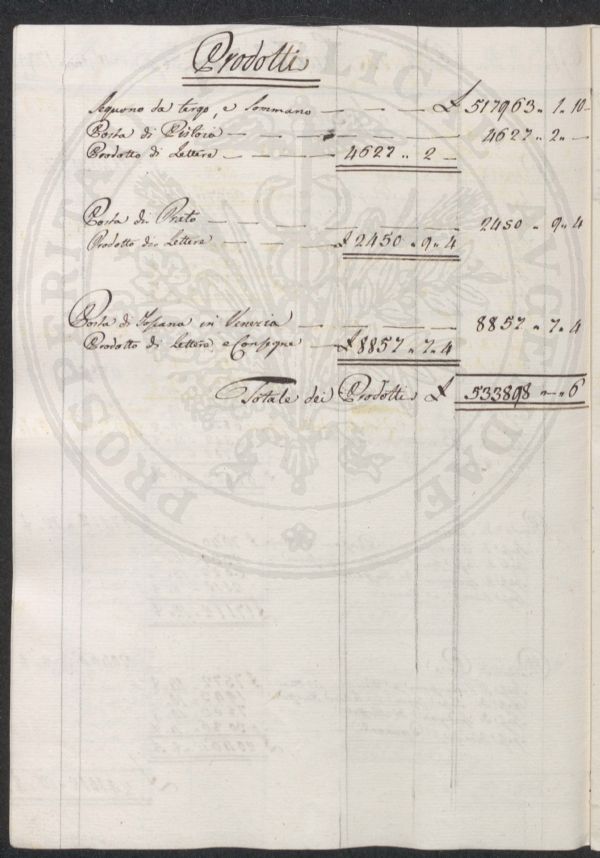 Prodotti
Seguono da tergo, e Sommano — — — £ 517963 „ 1 „ 10
Posta di Pistoia — — — — — 4627 „ 2 „ —
Prodotto di Lettere — — — 4627 „ 2 —
Posta di Prato — — — — — 2450 „ 9 „ 4
Prodotto di Lettere — — — £ 2450 „ 9 „ 4
Posta di Toscana in Venezia — — — 8857 „ 7 „ 4
Prodotto di Lettere, e Consegne — £ 8857 „ 7 „ 4
Totale dei Prodotti £ 533898 „ — „ 6